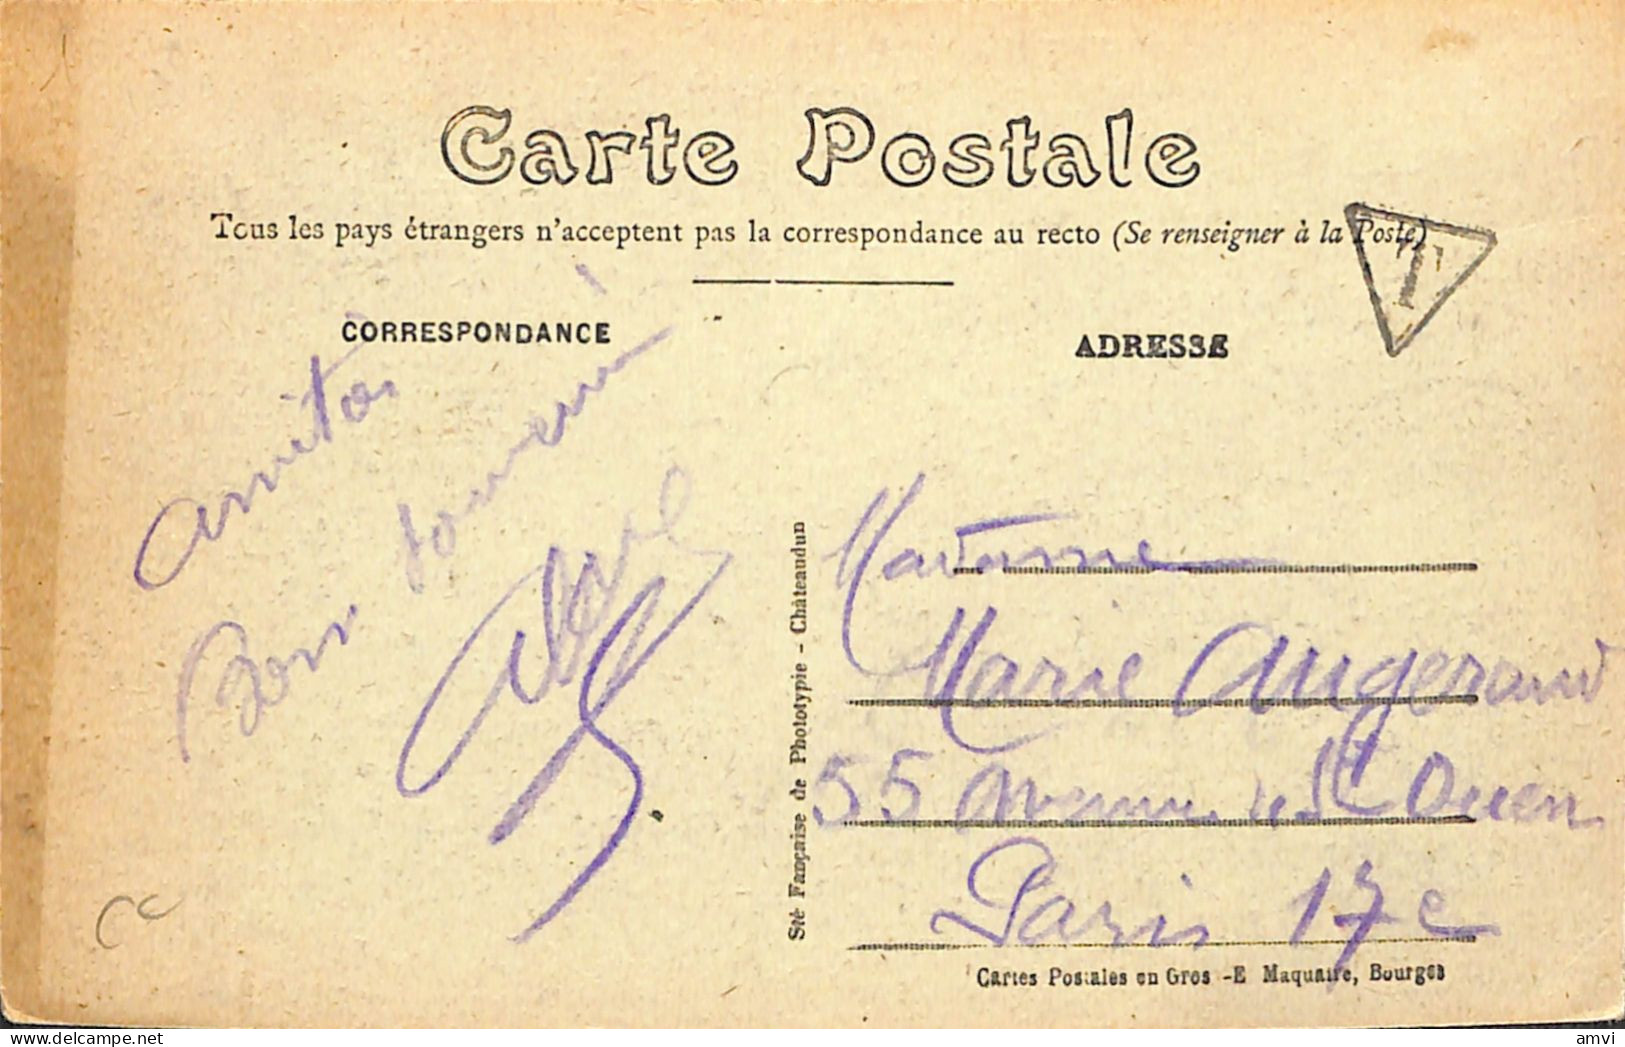 Carte Postale
Tous les pays étrangers n'acceptent pas la correspondance au recto (Se renseigner à la Poste)
T
CORRESPONDANCE
amitiés
Bon souvenir
ADRESSE
Madame
Marie Augerand
55 Avenue de St Ouen
Paris 17e
Sté Fançaise de Phototypie - Châteaudun
Cartes Postales en Gros -E Maquaire, Bourges
amvi